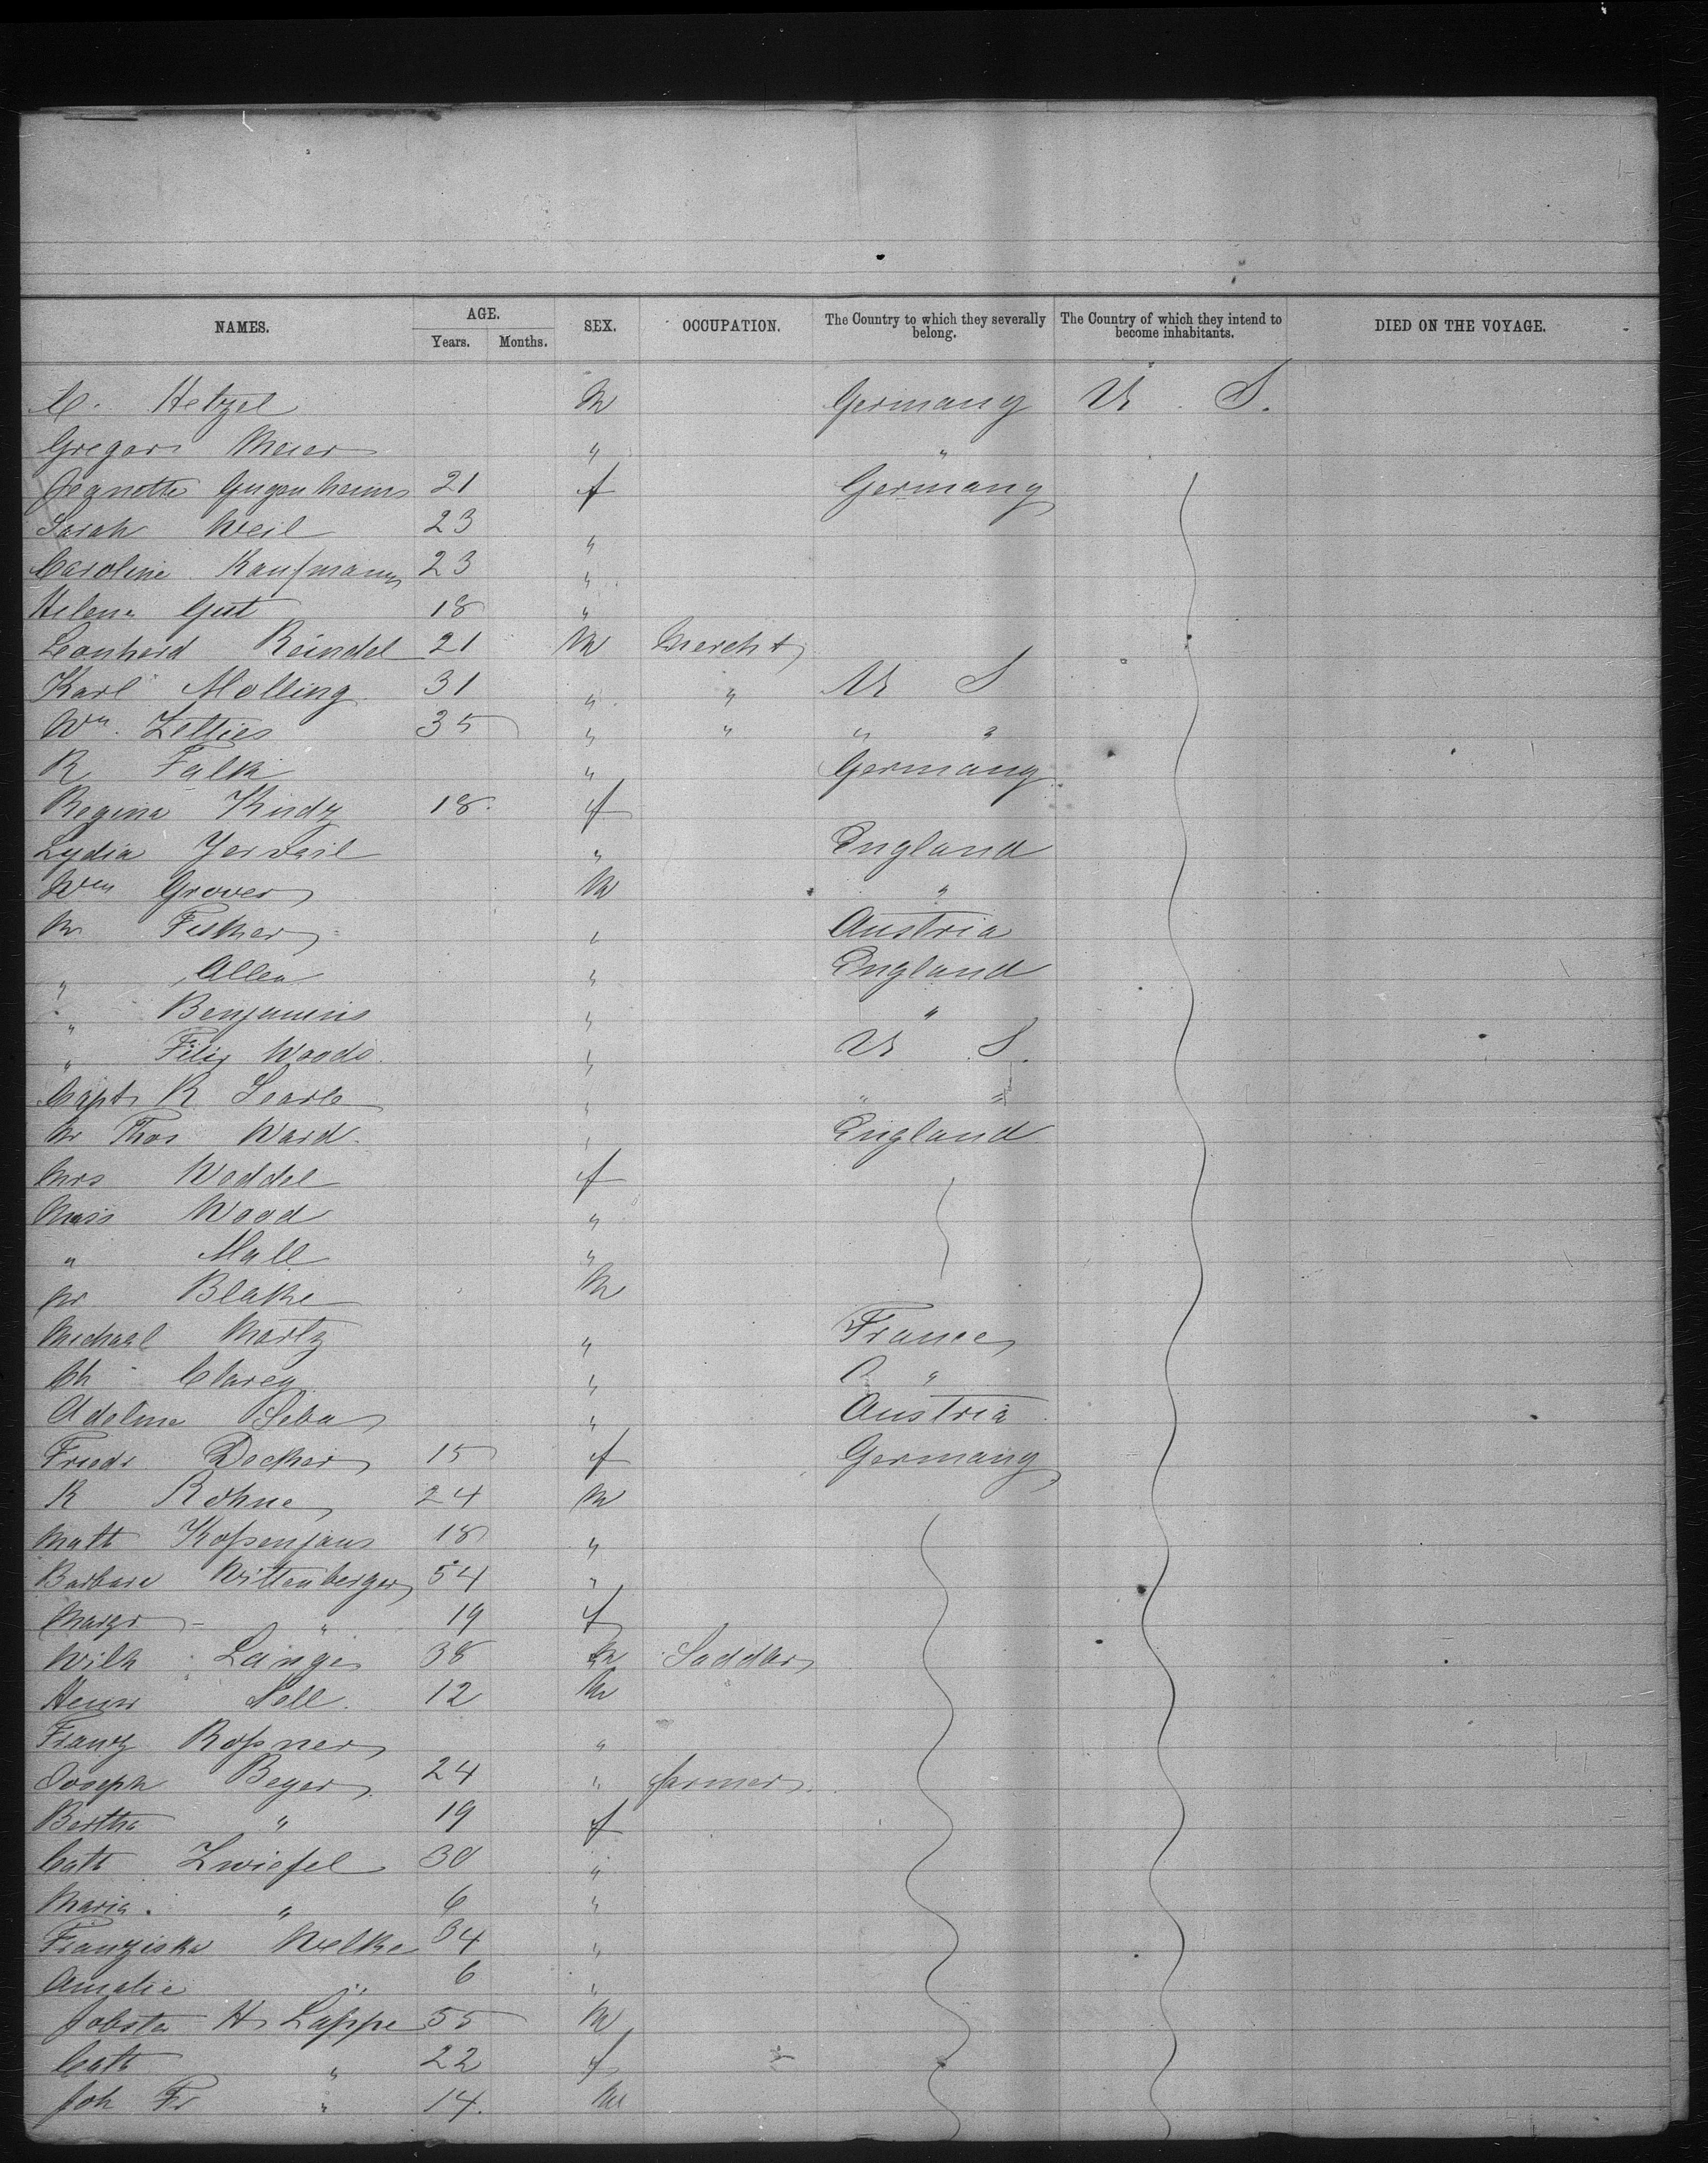 NAMES. AGE. Years. Months. SEX. OCCUPATION. The Country to which they severally belong. The Country of which they intend to become inhabitants. DIED ON THE VOYAGE.
C. Hetzel M Germany U. S.
Gregor Meier " "
Jeanette Gugenheim 21 f Germany
Sarah Weil 23 "
Caroline Kaufmann 23 "
Helena Gut 18 "
Leonherd Reindel 21 M Mercht
Karl Molling 31 " " U S
Wm. Zelties 35 " " " "
R Falk " Germany
Regina Kindy 18 f
Lydia " England
Wm Grover M "
Mr Fisher " Austria
" Allen " England
" Benjamin " "
" Woods " U S.
Capt R Searle " " "
Mr Thos Ward " England
Mrs Weddel f
Miss Wood "
" Mall "
Mr Blake M
Michael Mortz " France
Clarey " "
Adeline Seba " Austria
Friedr Decker 15 f Germany
R Rohne 24 M
Matt Koſsenjans 18 "
Barbara Wittenberger 54 "
Margr " 19 f
Wilh Lange 38 M Saddler
Henr Sell 12 M
Franz Roſsner "
Joseph Beyer 24 " farmer
Bertha " 19 f
Cath Zwiefel 30 "
Maria " 6 "
Franziska Welke 34 "
Amalie " 6 "
Jobst H Lappe 55 M
Cath " 22 f
Joh Fr " 14 M